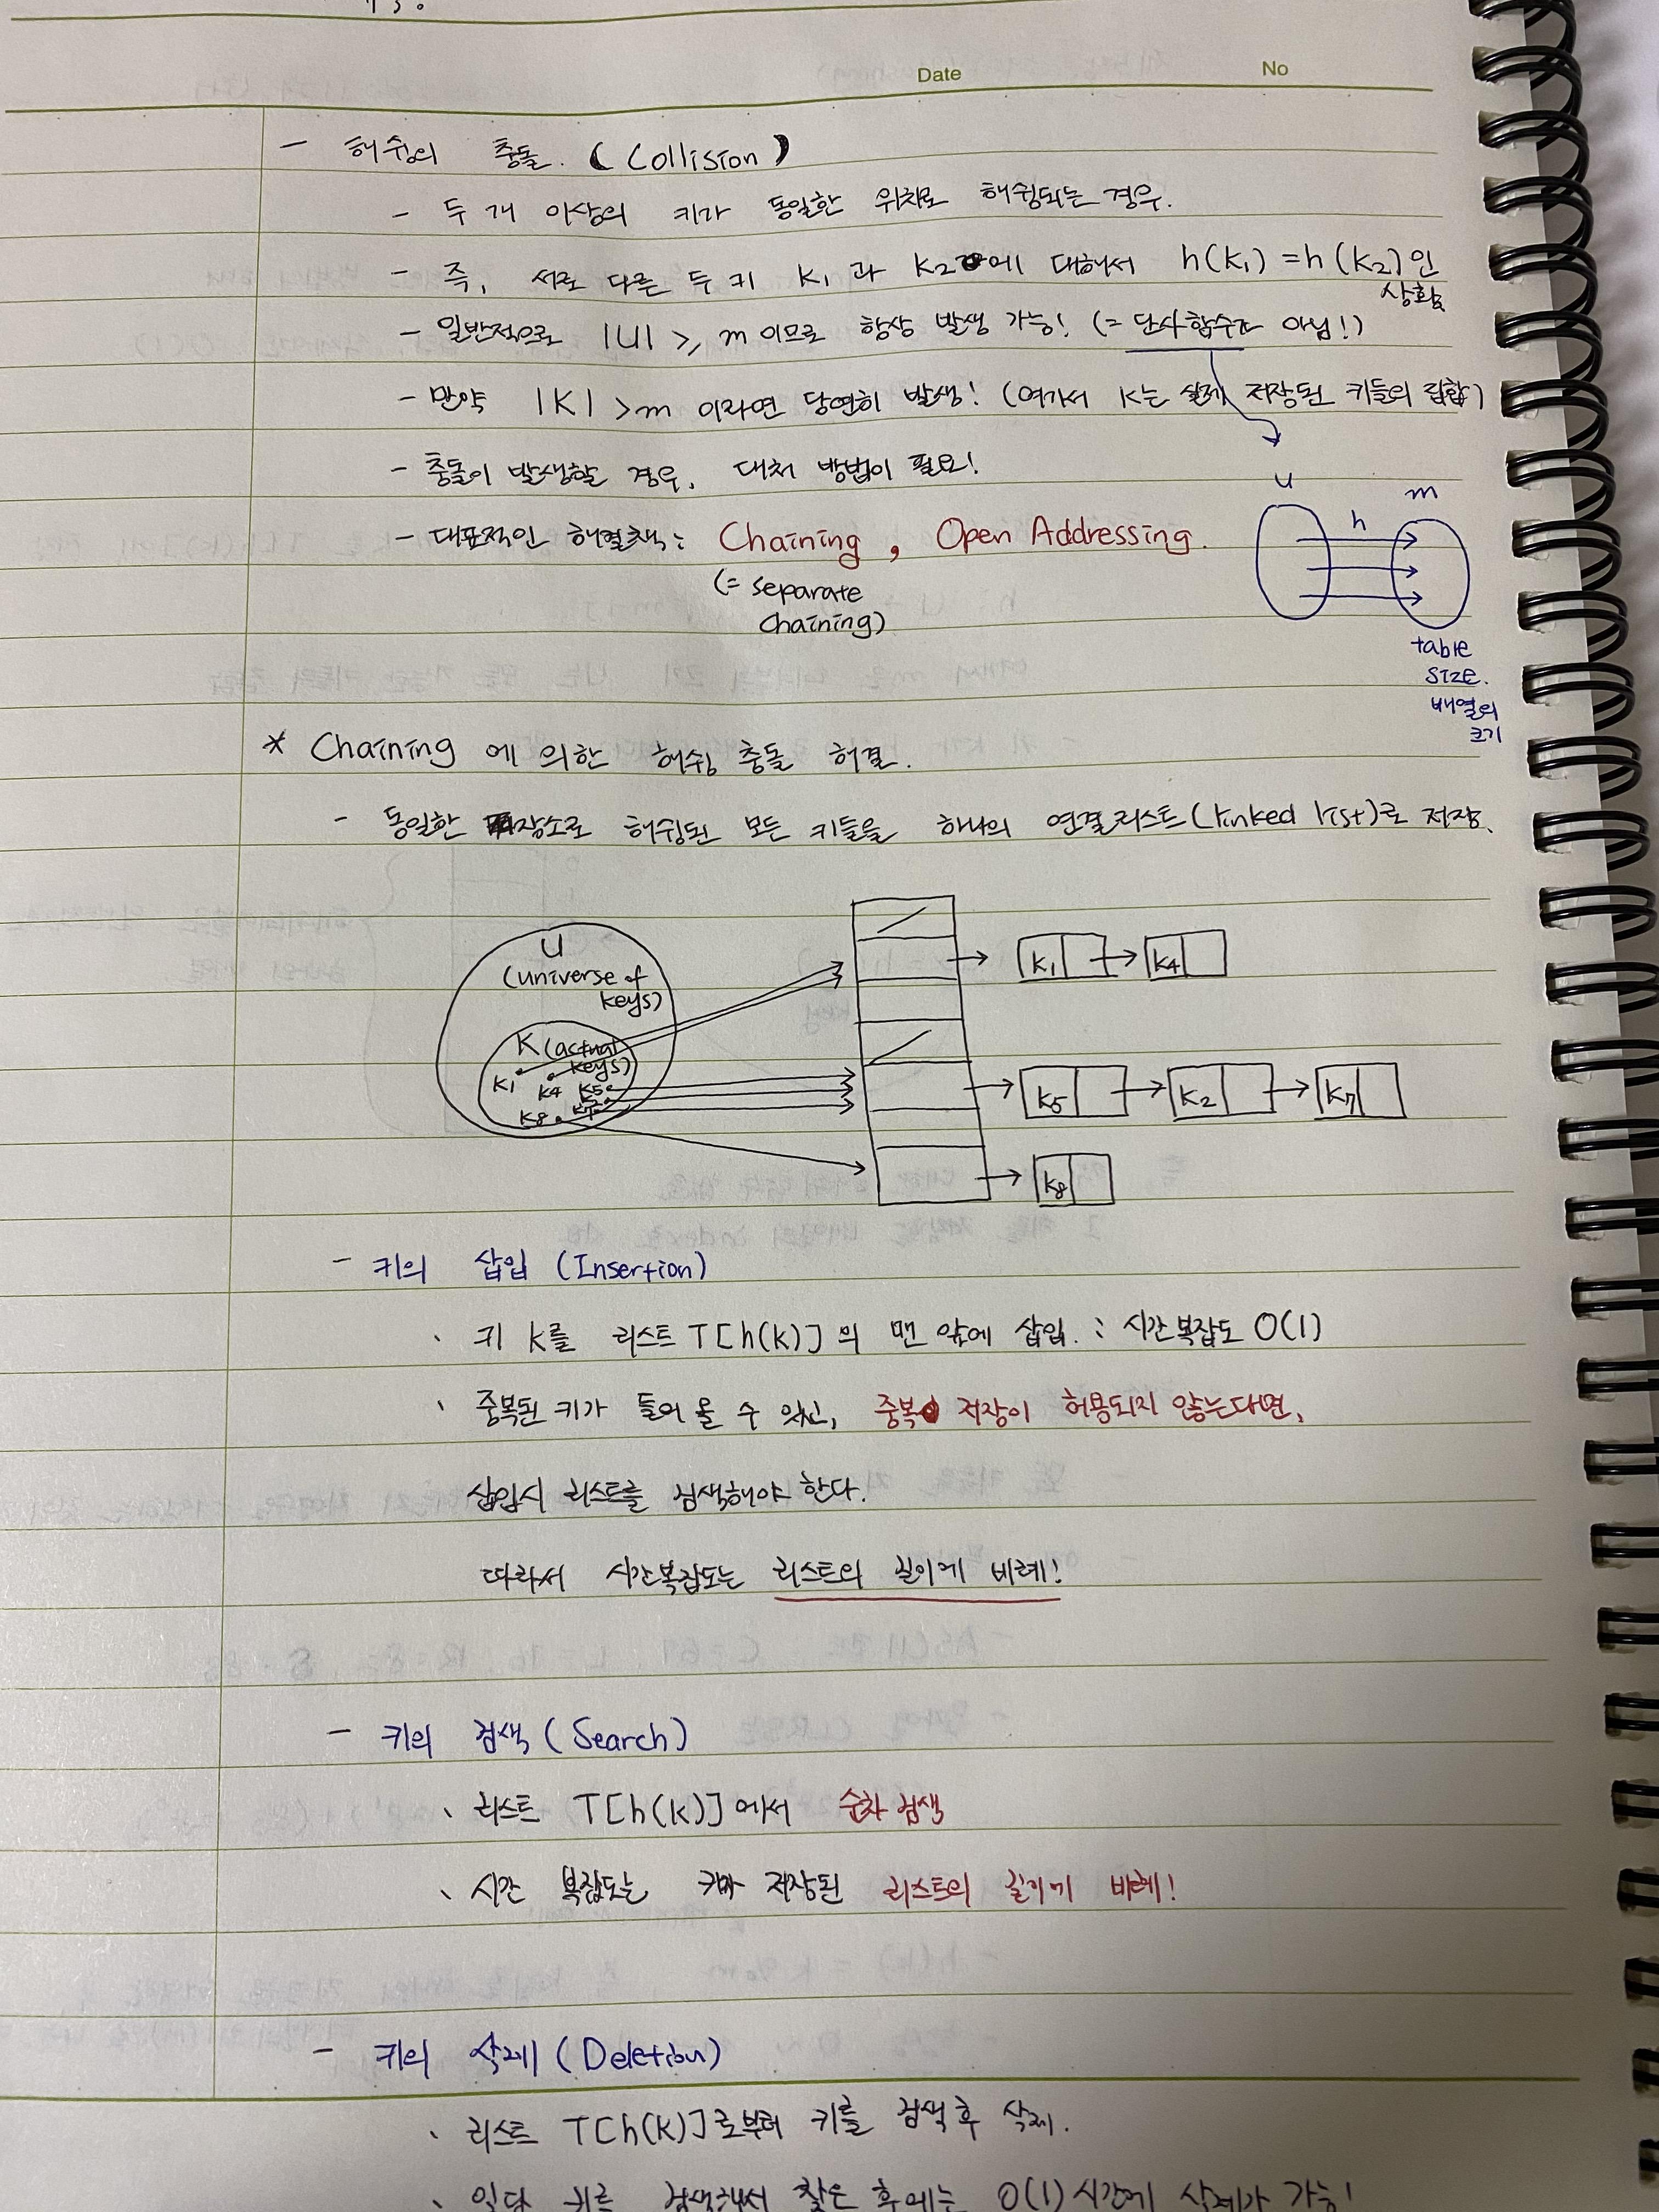 Date No
- 해슁의 충돌. (Collision)
- 두 개 이상의 키가 동일한 위치로 해슁되는 경우.
- 즉, 서로 다른 두 키 k1과 k2에 대해서 h(k1) = h(k2)인 상황
- 일반적으로 |U| ≥ m 이므로 항상 발생 가능! (= 단사함수가 아님!)
- 만약 |K| > m 이라면 당연히 발생! (여기서 K는 실제 저장된 키들의 집합)
- 충돌이 발생할 경우, 대처 방법이 필요!
- 대표적인 해결책: Chaining, Open Addressing.
(= separate
chaining)
U m
h
table
size.
배열의
크기
* Chaining 에 의한 해슁 충돌 해결.
- 동일한 장소로 해슁된 모든 키들을 하나의 연결리스트(linked list)로 저장.
U
(universe of
keys)
K (actual
keys)
k1 k4 k5
k8 k7
k1 k4
k5 k2 k7
k8
- 키의 삽입 (Insertion)
· 키 k를 리스트 T[h(k)]의 맨 앞에 삽입. : 시간복잡도 O(1)
· 중복된 키가 들어올 수 있고, 중복 저장이 허용되지 않는다면,
삽입시 리스트를 검색해야 한다.
따라서 시간복잡도는 리스트의 길이에 비례!
- 키의 검색 (Search)
· 리스트 T[h(k)]에서 순차 검색
· 시간 복잡도는 키가 저장된 리스트의 길이에 비례!
- 키의 삭제 (Deletion)
· 리스트 T[h(k)]로부터 키를 검색 후 삭제.
· 일단 키를 검색해서 찾은 후에는 O(1)시간에 삭제가 가능!